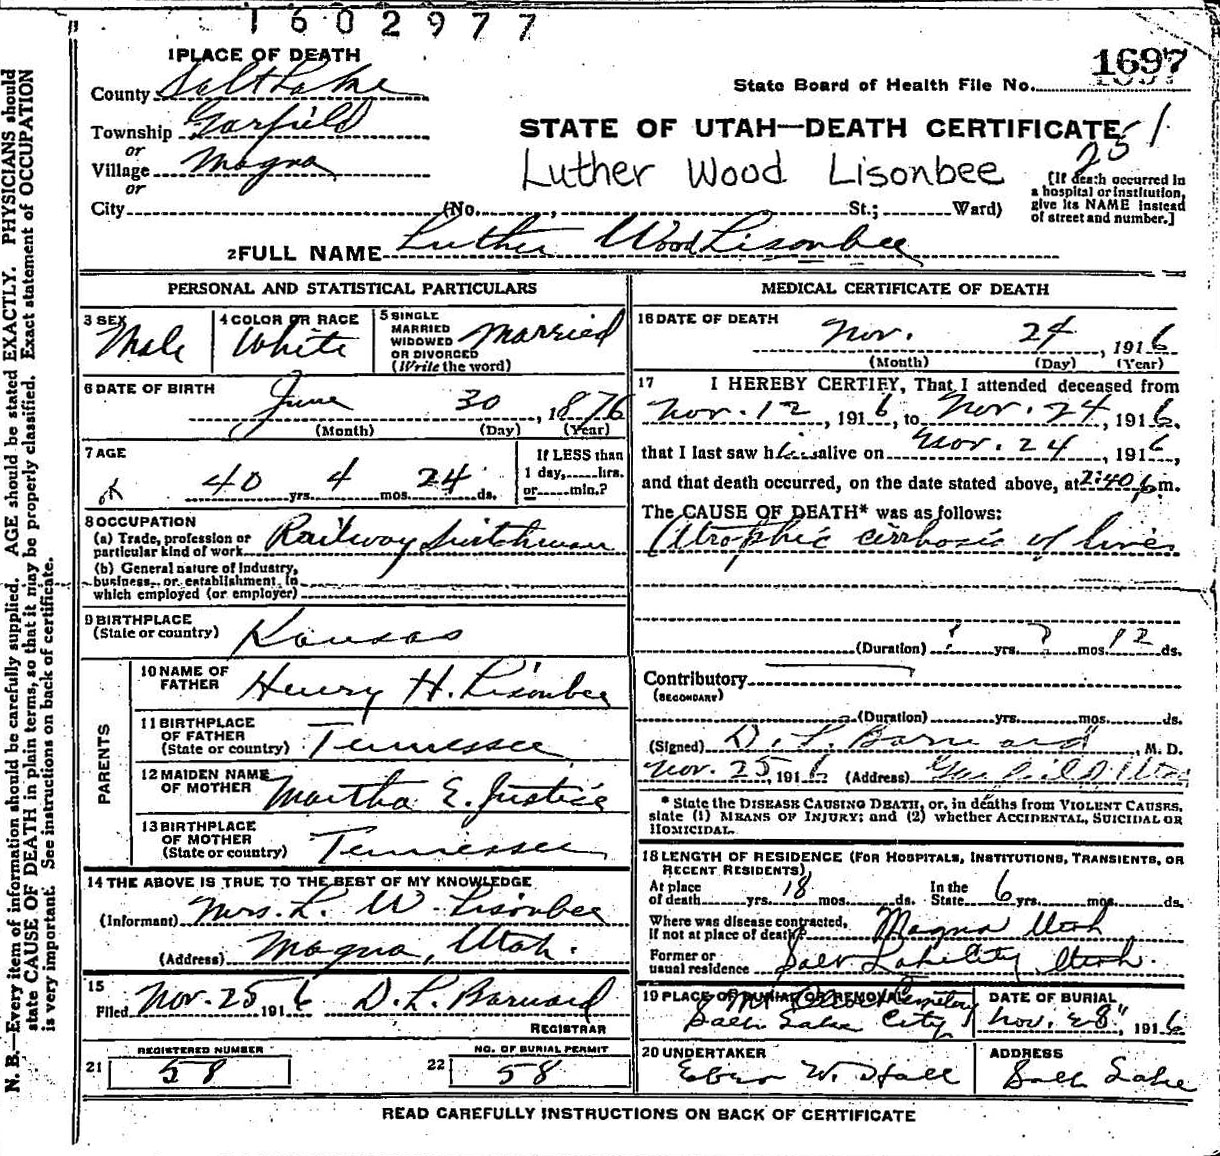 1602977
1 PLACE OF DEATH
1697
County Salt Lake
State Board of Health File No.
Township Garfield
STATE OF UTAH—DEATH CERTIFICATE
or
251
Village Magna
Luther Wood Lisonbee
or
City (No. , St.; Ward)
(If death occurred in
a hospital or institution,
give its NAME instead
of street and number.]
2 FULL NAME Luther Wood Lisonbee
PERSONAL AND STATISTICAL PARTICULARS
3 SEX Male
4 COLOR OR RACE White
5 SINGLE
MARRIED
WIDOWED
OR DIVORCED
(Write the word) Married
6 DATE OF BIRTH June 30, 1876
(Month) (Day) (Year)
7 AGE
40 yrs. 4 mos. 24 ds.
If LESS than
1 day, hrs.
or min.?
8 OCCUPATION
(a) Trade, profession or
particular kind of work Railway Switchman
(b) General nature of industry,
business, or establishment in
which employed (or employer)
9 BIRTHPLACE
(State or country) Kansas
PARENTS
10 NAME OF
FATHER Henry H. Lisonbee
11 BIRTHPLACE
OF FATHER
(State or country) Tennessee
12 MAIDEN NAME
OF MOTHER Martha E. Justice
13 BIRTHPLACE
OF MOTHER
(State or country) Tennessee
14 THE ABOVE IS TRUE TO THE BEST OF MY KNOWLEDGE
(Informant) Mrs. L. W. Lisonbee
(Address) Magna, Utah.
15
Filed Nov. 25 1916 D. L. Barnard
REGISTRAR
REGISTERED NUMBER
21 58
NO. OF BURIAL PERMIT
22 58
MEDICAL CERTIFICATE OF DEATH
16 DATE OF DEATH Nov. 24, 1916
(Month) (Day) (Year)
17 I HEREBY CERTIFY, That I attended deceased from
Nov. 12, 1916, to Nov. 24, 1916.
that I last saw him alive on Nov. 24, 1916,
and that death occurred, on the date stated above, at 2:40 p.m.
The CAUSE OF DEATH* was as follows:
Atrophic cirrhosis of liver
(Duration) ? yrs. ? mos. 12 ds.
Contributory
(SECONDARY)
(Duration) yrs. mos. ds.
(Signed) D. L. Barnard, M. D.
Nov. 25, 1916 (Address) Garfield Utah
* State the DISEASE CAUSING DEATH, or, in deaths from VIOLENT CAUSES,
state (1) MEANS OF INJURY; and (2) whether ACCIDENTAL, SUICIDAL OR
HOMICIDAL.
18 LENGTH OF RESIDENCE (FOR HOSPITALS, INSTITUTIONS, TRANSIENTS, OR
RECENT RESIDENTS)
At place
of death yrs. 18 mos. ds.
In the
State 6 yrs. mos. ds.
Where was disease contracted,
if not at place of death? Magna Utah
Former or
usual residence Salt Lake City Utah.
19 PLACE OF BURIAL OR REMOVAL
Mt Olivet Cemetery
Salt Lake City
DATE OF BURIAL
Nov. 28", 1916
20 UNDERTAKER
Eber W. Hall
ADDRESS
Salt Lake
READ CAREFULLY INSTRUCTIONS ON BACK OF CERTIFICATE
N. B.—Every item of information should be carefully supplied. AGE should be stated EXACTLY. PHYSICIANS should
state CAUSE OF DEATH in plain terms, so that it may be properly classified. Exact statement of OCCUPATION
is very important. See instructions on back of certificate.